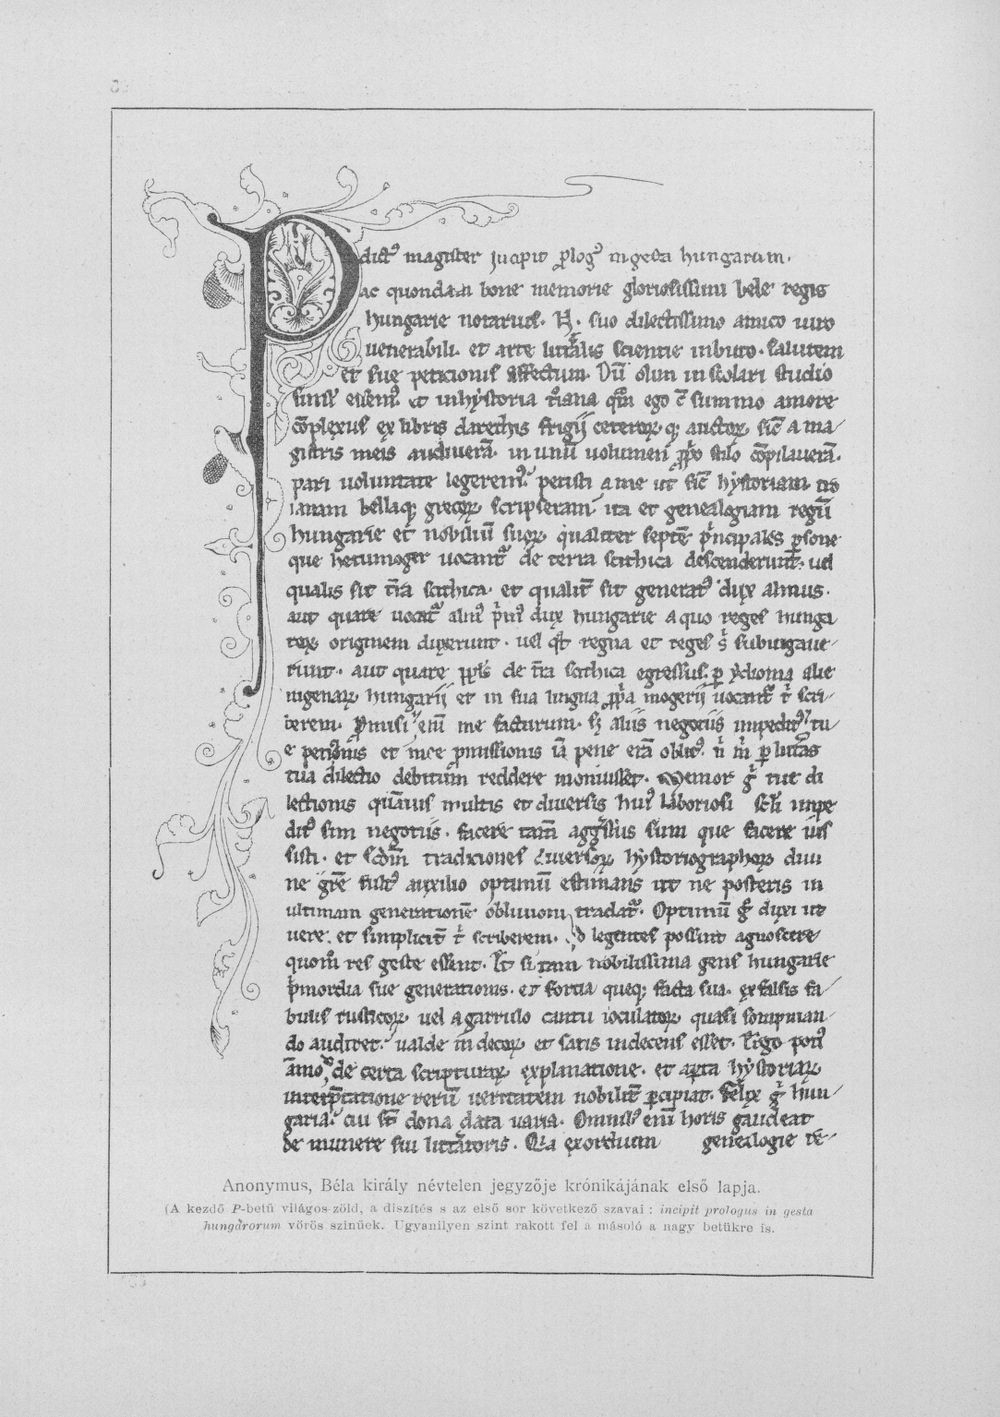 P dictus magister Incipit prologus in gesta hungarum.
ac quondam bone memorie gloriosissimi bele regis
hungarie notarius. N. suo dilectissimo amico uiro
uenerabili. et arte litteralis scientie inbuto. Salutem
et sue peticionis effectum. Dū olim in scolari studio
simul essemꝰ et in hystoria troiana qm ego cū summo amore
cōplexus ex libris daretis frigij ceterorꝝ qꝫ auctorꝝ sic̄ a ma/
gistris meis audiuerā. in unū uolumen proprio stilo cōpilauerā.
pari uoluntate legeremꝰ. petisti a me ut sic̄ hystoriam tro
ianam bellaqꝫ grecorꝝ scripseram ita et genealogiam regū
hungarie et nobiliū suorꝝ qualiter septē p̄ncipales ꝑsone
que hetumoger uocantꝰ de terra scithica descenderunt. uel
qualis sit t̄ra scithica. et qualit̄ sit generatꝰ dux almus.
aut quare uocatꝰ almꝰ p̄mꝰ dux hungarie a quo reges hunga
rorꝝ originem duxerunt. uel qt regna et reges s̄ subiugaue-
runt. aut quare ppls de t̄ra scithica egressus. ꝑ ydioma alie
nigenarꝝ hungarij et in sua lingua ppa mogerij uocant̄ t̄ scri-
berem. Promisi eni me facturum. sꝫ aliis negotiis impeditꝰ tu/
e peticionis et mee pmissionis iā pene erā oblitꝰ. n̄ m̄ ꝑ litteras
tua dilectio debitum reddere monuisset. Memor g̊ tue di
lectionis quāuis multis et diuersis huiꝰ laboriosi scli impe
ditꝰ sim negotiis. facere tam̄ aggressus sum que facere ius
sisti. et scdm tradiciones diuersorꝝ hystoriographorꝝ diui
ne gr̄e fultꝰ auxilio optimū estimans ut ne posteris in
ultimam generationē obliuioni tradatꝰ. Optimū g̊ duxi ut
uere. et simplicit̄ t̄ scriberem. qd legentes possint agnoscere
quom res geste essent. Et si tam nobilissima gens hungarie
p̄mordia sue generationis. et fortia queqꝫ facta sua. ex falsis fa/
bulis rusticorꝝ uel a garrulo cantu ioculatorꝝ quasi sompnian-
do audiret. ualde indecorꝝ et satis indecens esset. Ergo potiꝰ
āmodo de certa scripturarꝝ explanatione. et aperta hystoriarꝝ
interp̄tatione rerū ueritatem nobilit̄ ꝑcipiat. Felix g̊ hun/
garia. cui st̄ dona data uaria. Omnibꝰ eni horis gaudeat
de munere sui litteratoris. Qia exordium genealogie re-
Anonymus, Béla király névtelen jegyzője krónikájának első lapja.
(A kezdő P-betű világos-zöld, a diszítés s az első sor következő szavai : incipit prologus in gesta
hungárorum vörös szinűek. Ugyanilyen szint rakott fel a másoló a nagy betűkre is.